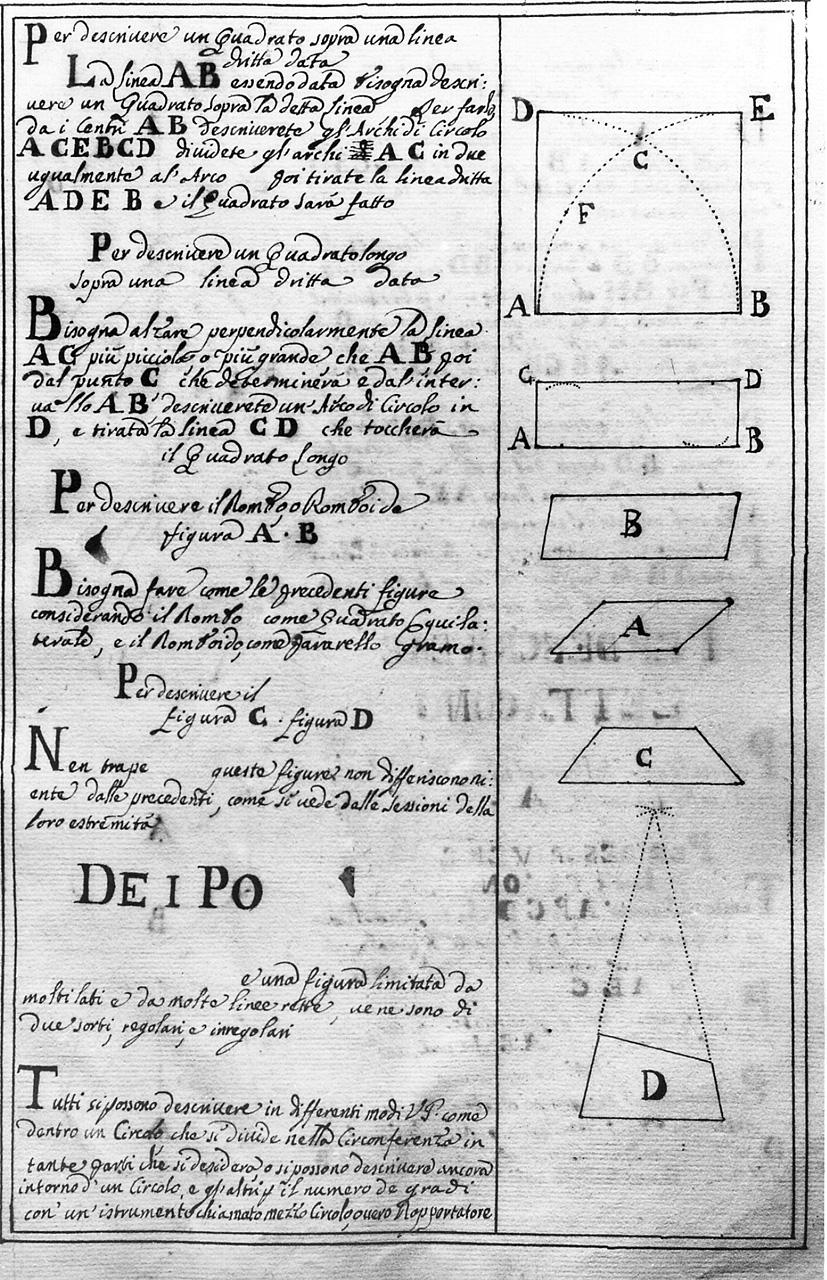 Per descrivere un Quadrato sopra una linea
dritta data
La linea AB essendo data bisogna descri:
vere un Quadrato sopra la detta linea Per farlo
da i Centri AB descriverete gl'Archi di Circolo
ACEBCD dividete gl'archi AC in due
ugualmente al'Arco poi tirate la linea dritta
ADEB e il Quadrato sarà fatto
Per descrivere un Quadrato longo
sopra una linea dritta data
Bisogna alzare perpendicolarmente la linea
AC più picciola o più grande che AB poi
dal punto C che determinerà e dal'inter:
vallo AB descriverete un'Arco di Circolo in
D, e tirata la linea CD che toccherà
il Quadrato Longo
Per descrivere il Rombo, o Romboide
figura A. B
Bisogna fare come le precedenti figure
considerando il Rombo come Quadrato Equila:
terale, e il Romboido, come Pararello gramo.
Per descrivere il
figura C. figura D
Nen trape queste figure non differiscono ni:
ente dalle precedenti, come si vede dalle sessioni della
loro estremità
DE I PO
e una figura limitata da
molti lati e da molte linee rette, ve ne sono di
due sorti, regolari, e irregolari
Tutti si possono descrivere in differenti modi V.P. come
dentro un Circolo che si divide nella Circonferenza in
tante parti che si desidera o si possono descrivere ancora
intorno d'un Circolo, e gl'altri p il numero de gradi
con un'istrumento chiamato mezzo Circolo, overo Rapportatore
D E
C
F
A B
C D
A B
B
A
C
D